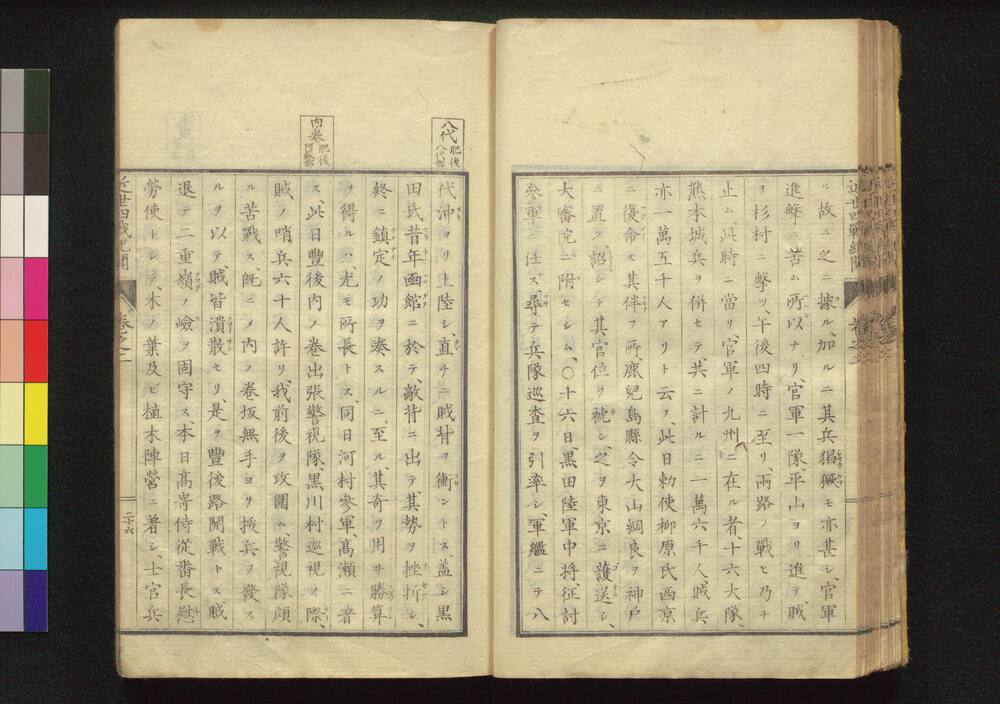 ル故ニ之ニ據ル、加ルニ其兵猖獗モ亦甚シ、官軍
進擊ニ苦ム所以ナリ、官軍一隊、平山ヨリ進テ賊
ヲ杉村ニ擊リ、午後四時ニ至リ、兩路ノ戰ヒ乃チ
止ム、此時ニ當リ、官軍ノ九州ニ在ル者、十六大隊、
熊本城兵ヲ併セテ共ニ計ルニ一萬六千人、賊兵
亦一萬五千人アリト云フ、此日勅使柳原氏西京
ニ復命ス其伴フ所、鹿兒島縣令大山綱良ヲ神戸
ニ置ク、詔シテ其官位ヲ褫シ、之ヲ東京ニ護送シ、
大審院ニ附セシム、〇十六日、黒田陸軍中將、征討
參軍ニ任ス、尋テ兵隊巡査ヲ引率シ、軍艦ニテ八
八代 肥後
代沖ヨリ上陸シ、直チニ賊背ヲ衝ントス、蓋シ黒
田氏昔年函館ニ於テ、敵背ニ出テ其勢ヲ挫折シ、
終ニ鎮定ノ功ヲ奏スルニ至ル、其奇ヲ用ヰ勝算
ヲ得ルハ、尤モ所長トス、同日河村參軍、高瀬ニ着
内巻 肥後
ス、此日豐後内ノ巻出張警視隊、黒川村巡視ノ際、
賊ノ哨兵六十人許リ、我前後ヲ攻圍ム、警視隊頗
ル苦戰ス、既ニメ内ノ巻坂無手ヨリ援兵ヲ發ス
ルヲ以テ、賊皆潰散セリ、是ヲ豐後路開戰トス賊
退テ二重嶺ノ嶮ヲ固守ス、本日高寄侍從番長慰
勞使トシテ、木ノ葉及ビ植木陣營ニ著シ、士官兵
巻之二
二十六